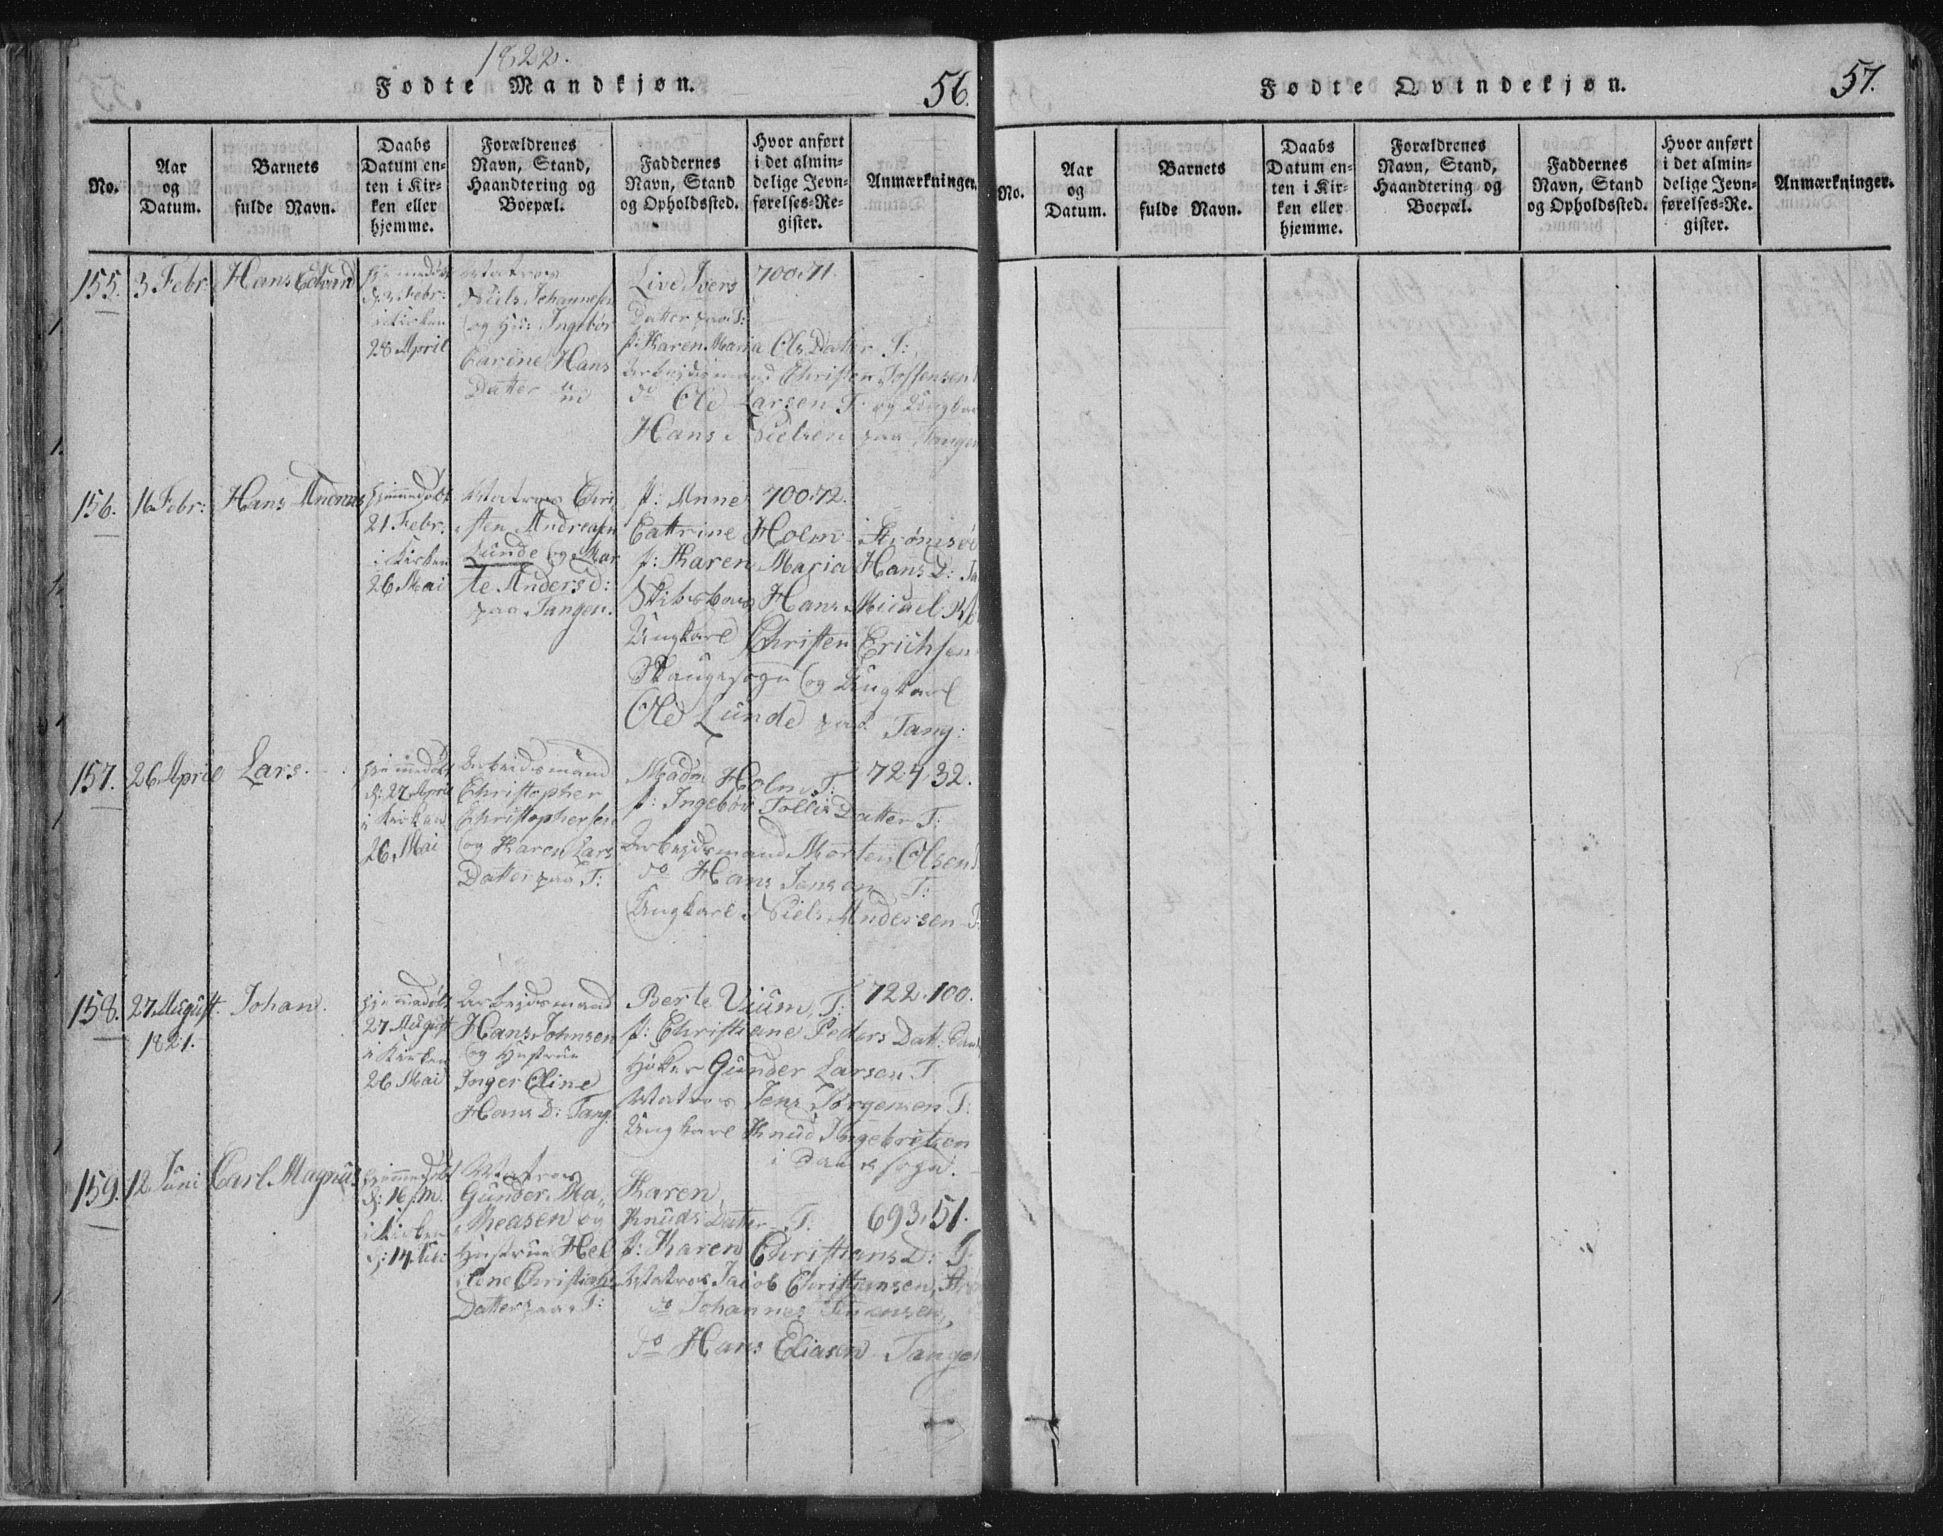 1822.
Fødte Mandkjøn.
56.
No.
Aar og Datum.
Barnets fulde Navn.
Daabs Datum enten i Kirken eller hjemme.
Forældrenes Navn, Stand, Haandtering og Boepæl.
Faddernes Navn, Stand og Opholdssted.
Hvor anført i det almindelige Jevnførelses-Register.
Anmærkninger.
155.
3 Febr:
Hans Edvard
hjemmedøbt
d: 3 Febr:
i Kirken
28 April
Matros
Niels Johannesen
og Hu: Ingebør
Carine Hans
Datter
Live Ivers
Datter paa T:
P: Karen Maria Ols Datter T:
Arbejdsmand Christen
do Ole Larsen T: og Ungkarl
Hans Nielsen paa Tangen
700.71.
156.
16 Febr:
Hans Andreas
hjemmedøbt
21 Febr.
i Kirken
26 Mai
Matros Chri
sten Andreasen
Lunde og Mar
te Anders D:
paa Tangen.
P: Anne
Cattrine Holm Strømsøe
P: Karen Maria Hans D:
Hans Micael
Ungkarl Christen Erichsen
Skaugesogn og Ungkarl
Ole Lunde paa Tang:
700.72.
157.
26 April
Lars.
hjemmedøbt
d: 27 April
i Kirken
26 Mai
Arbeidsmand
Christopher
Christophersen
og Karen Lars
Datter paa T:
Madm Holm T:
P: Ingebør Datter T:
Arbejdsmand Morten Olsen
do Hans Jensen T:
Ungkarl Niels Andersen T:
724.32.
158.
27 August
1821.
Johan.
hjemmedøbt
27 August
i Kirken
26 Mai
Arbejdsmand
Hans Johnsen
og Hustrue
Inger Eline
Hans D: Tang:
Berte Vium, T:
P: Christiane Peders Dat:
Høker Gunder Larsen T
Matros Jens Jørgensen T:
Ungkarl Knud Ingebretsen
i sogn.
722.100.
159.
12 Juni
Carl Magnus
hjemmedøbt
d: 16
i Kirken
d: 14
Matros
Gunder Ma,,
theasen og
Hustrue Hel
lene Christians
Datter paa T:
Karen
Knuds Datter T:
P: Karen Christians D: T:
Matros Jacob Christiansen,
do Johannes
do Hans Eliasen Tangen
693.51.
Fødte Qvindekjøn.
57.
No.
Aar og Datum.
Barnets fulde Navn.
Daabs Datum enten i Kirken eller hjemme.
Forældrenes Navn, Stand, Haandtering og Boepæl.
Faddernes Navn, Stand og Opholdssted.
Hvor anført i det almindelige Jevnførelses-Register.
Anmærkninger.